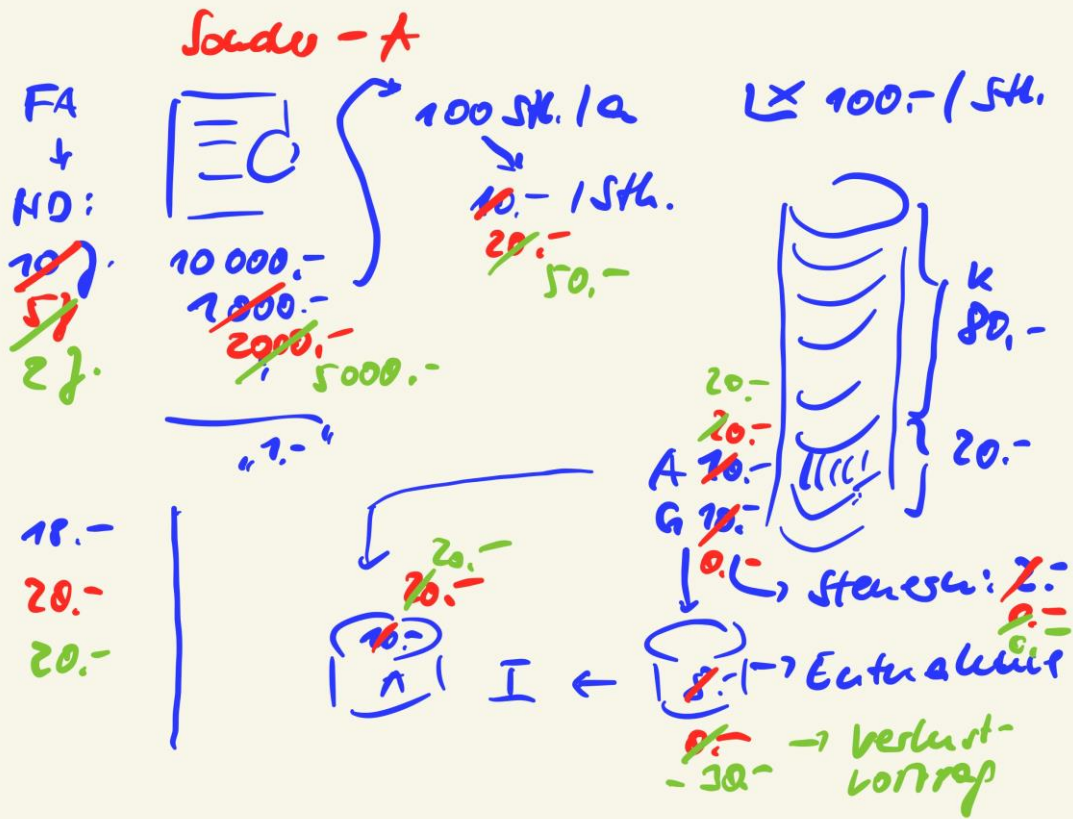 Sonder - A
FA
ND:
10 J.
5 J
2 J.
10 000.-
1 000.-
2000.-
5000.-
"1.-"
100 Stk. / a
10.- / Stk.
20.-
50,-
100.- / Stk.
K
80,-
20.-
20.-
20.-
A 10.-
G 10.-
0.-
Steuern: 2.-
0.-
0.-
18.-
20.-
20.-
20.-
20.-
10.-
A
I
8.-
Entnahme
0.-
-30.-
Verlust-
vortrag